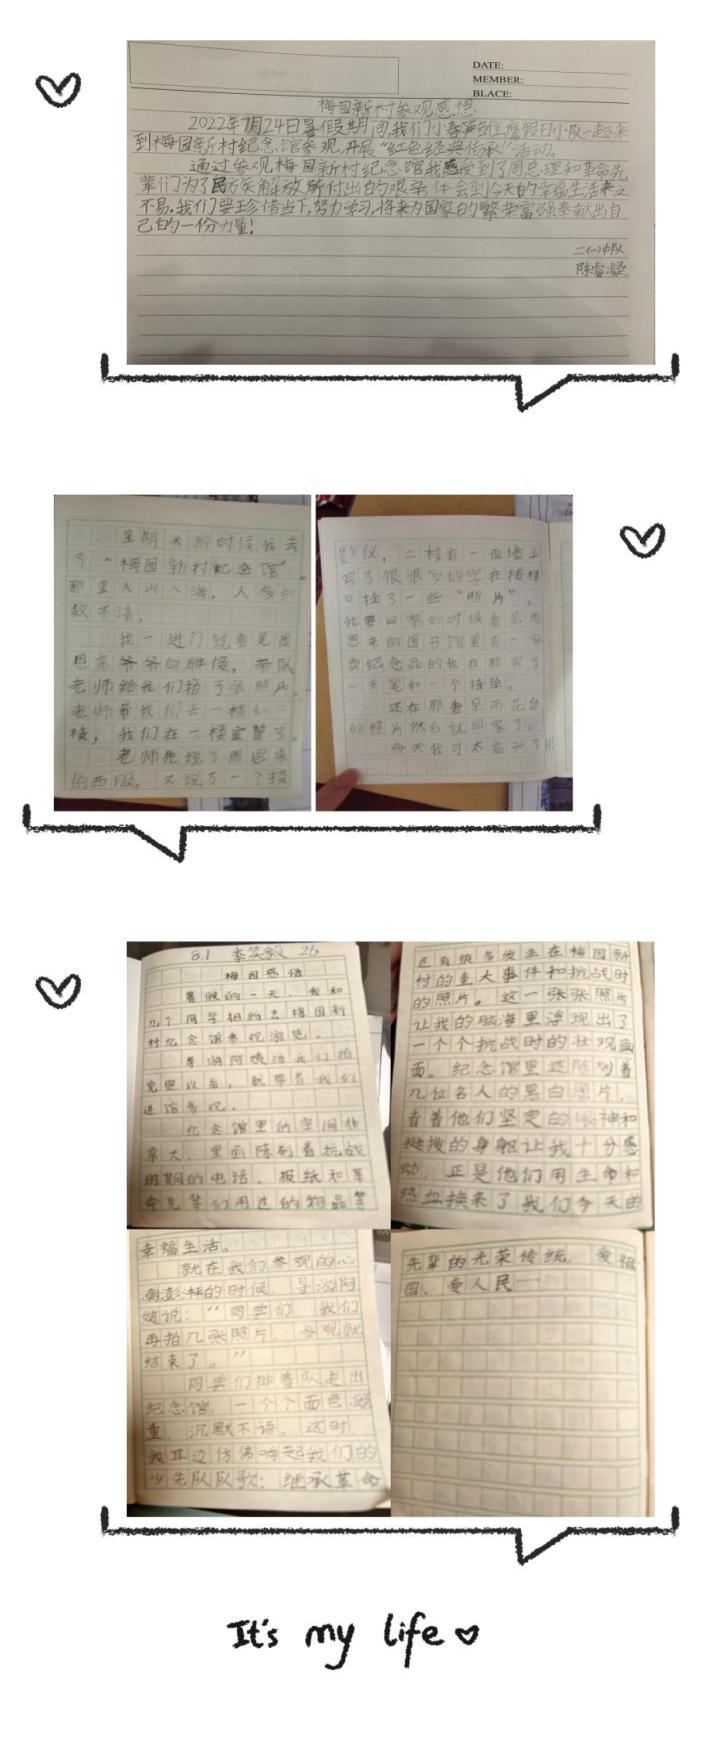 DATE:
MEMBER:
BLACE:
梅园新村参观感想
2022年7月24日暑假期间,我们小春笋雏鹰假日小队一起来
到梅园新村纪念馆参观,开展“红色经典传承”活动。
通过参观梅园新村纪念馆我感受到了周总理和革命先
辈们为了民族解放所付出的艰辛,体会到今天的幸福生活来之
不易。我们要珍惜当下,努力学习,将来为国家的繁荣富强奉献出自
己的一份力量!
二(一)中队
陈睿凝
星期天的时候我去
了“梅园新村纪念馆”。
那里人山人海,人多的
数不清。
我一进门就看见周
恩来爷爷的雕像。带队
老师给我们拍了张照片。
老师带我们去一楼和二
楼,我们在一楼宣誓了。
老师先说了周恩来
的西服,又说了一个投
影仪,二楼有一面墙上
写了很很多的字在楼梯
口挂了一些“照片”。
我要回家的时候看见周
恩来的图书馆里有一家
卖纪念品的我在那买了
一支笔和一个挂坠。
还在那看见雨花台
的照片然后就回家了。
今天我可太高兴了!!!
8.1 季笑 26
梅园感悟
暑假的一天,我和
几个同学相约去梅园新
村纪念馆参观游览。
导游阿姨给我们拍
完照以后,就带着我们
进馆参观。
纪念馆里的空间非
常大,里面陈列着抗战
时期的电话、报纸和革
命先辈们用过的物品等
还有很多发生在梅园新
村的重大事件和抗战时
的照片。这一张张照片
让我的脑海里浮现出了
一个个抗战时的壮观画
面。纪念馆里还陈列着
几位名人的黑白照片,
看着他们坚定的眼神和
挺拨的身躯让我十分感
动,正是他们用生命和
热血换来了我们今天的
幸福生活。
就在我们参观的心
潮澎湃的时候,导游阿
姨说:“同学们,我们
再拍几张照片,参观就
结束了。”
同学们排着队走出
纪念馆,一个个面色凝
重,沉默不语。这时,
我耳边仿佛响起我们的
少先队队歌:继承革命
先辈的光荣传统,爱祖
国、爱人民……
It's my life